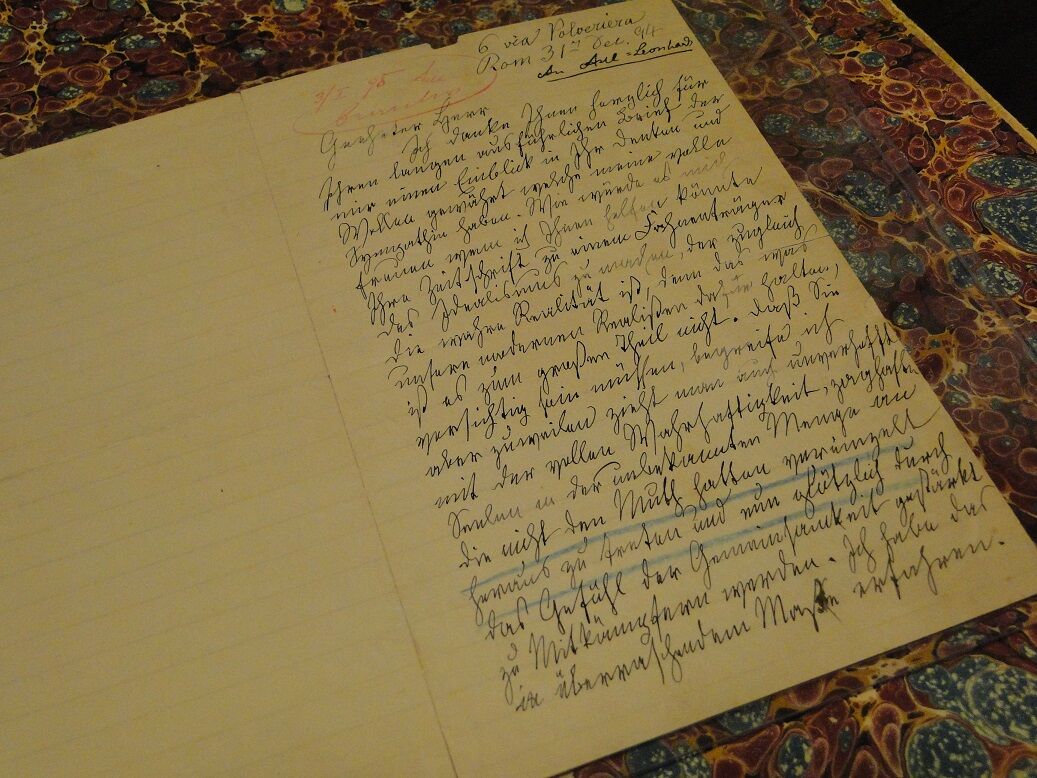 6 via Polveriera
Rom 31 Dec. 94
An =Leonhard
3/I 95
Geehrter Herr
Ich danke Ihnen herzlich für
Ihren langen ausführlichen Brief der
mir einen Einblick in Ihr Denken und
Wollen gewährt welche meine volle
Sympathie haben. Wie würde es mich
freuen wenn ich Ihnen helfen könnte
Ihre Zeitschrift zu einem Fahnenträger
des Idealismus zu machen, der zugleich
die wahre Realität ist, denn das was
unsere modernen Realisten dafür halten,
ist es zum großen Theil nicht. Daß Sie
vorsichtig sein müssen, begreife ich
aber zuweilen zieht man auch unverhofft
mit der vollen Wahrhaftigkeit, zaghafte
Seelen in der unbekannten Menge an
die nicht den Muth hatten vereinzelt
heraus zu treten und nun plötzlich durch
das Gefühl der Gemeinsamkeit gestärkt
zu Mitkämpfern werden. Ich habe das
in überraschendem Maße erfahren.